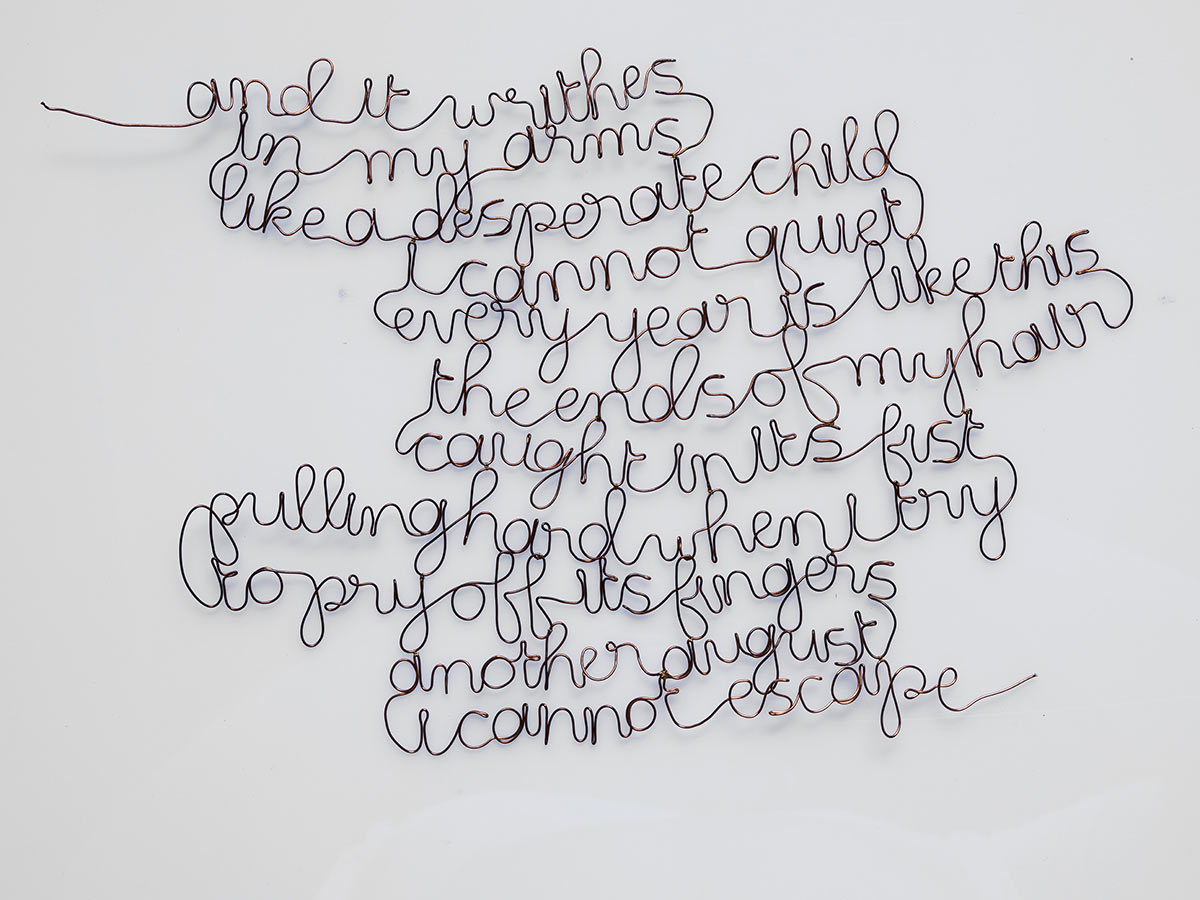 and it writhes
in my arms
like a desperate child
i cannot quiet
every year is like this
the ends of my hair
caught in its fist
pulling hard when i try
to pry off its fingers
another august
i cannot escape